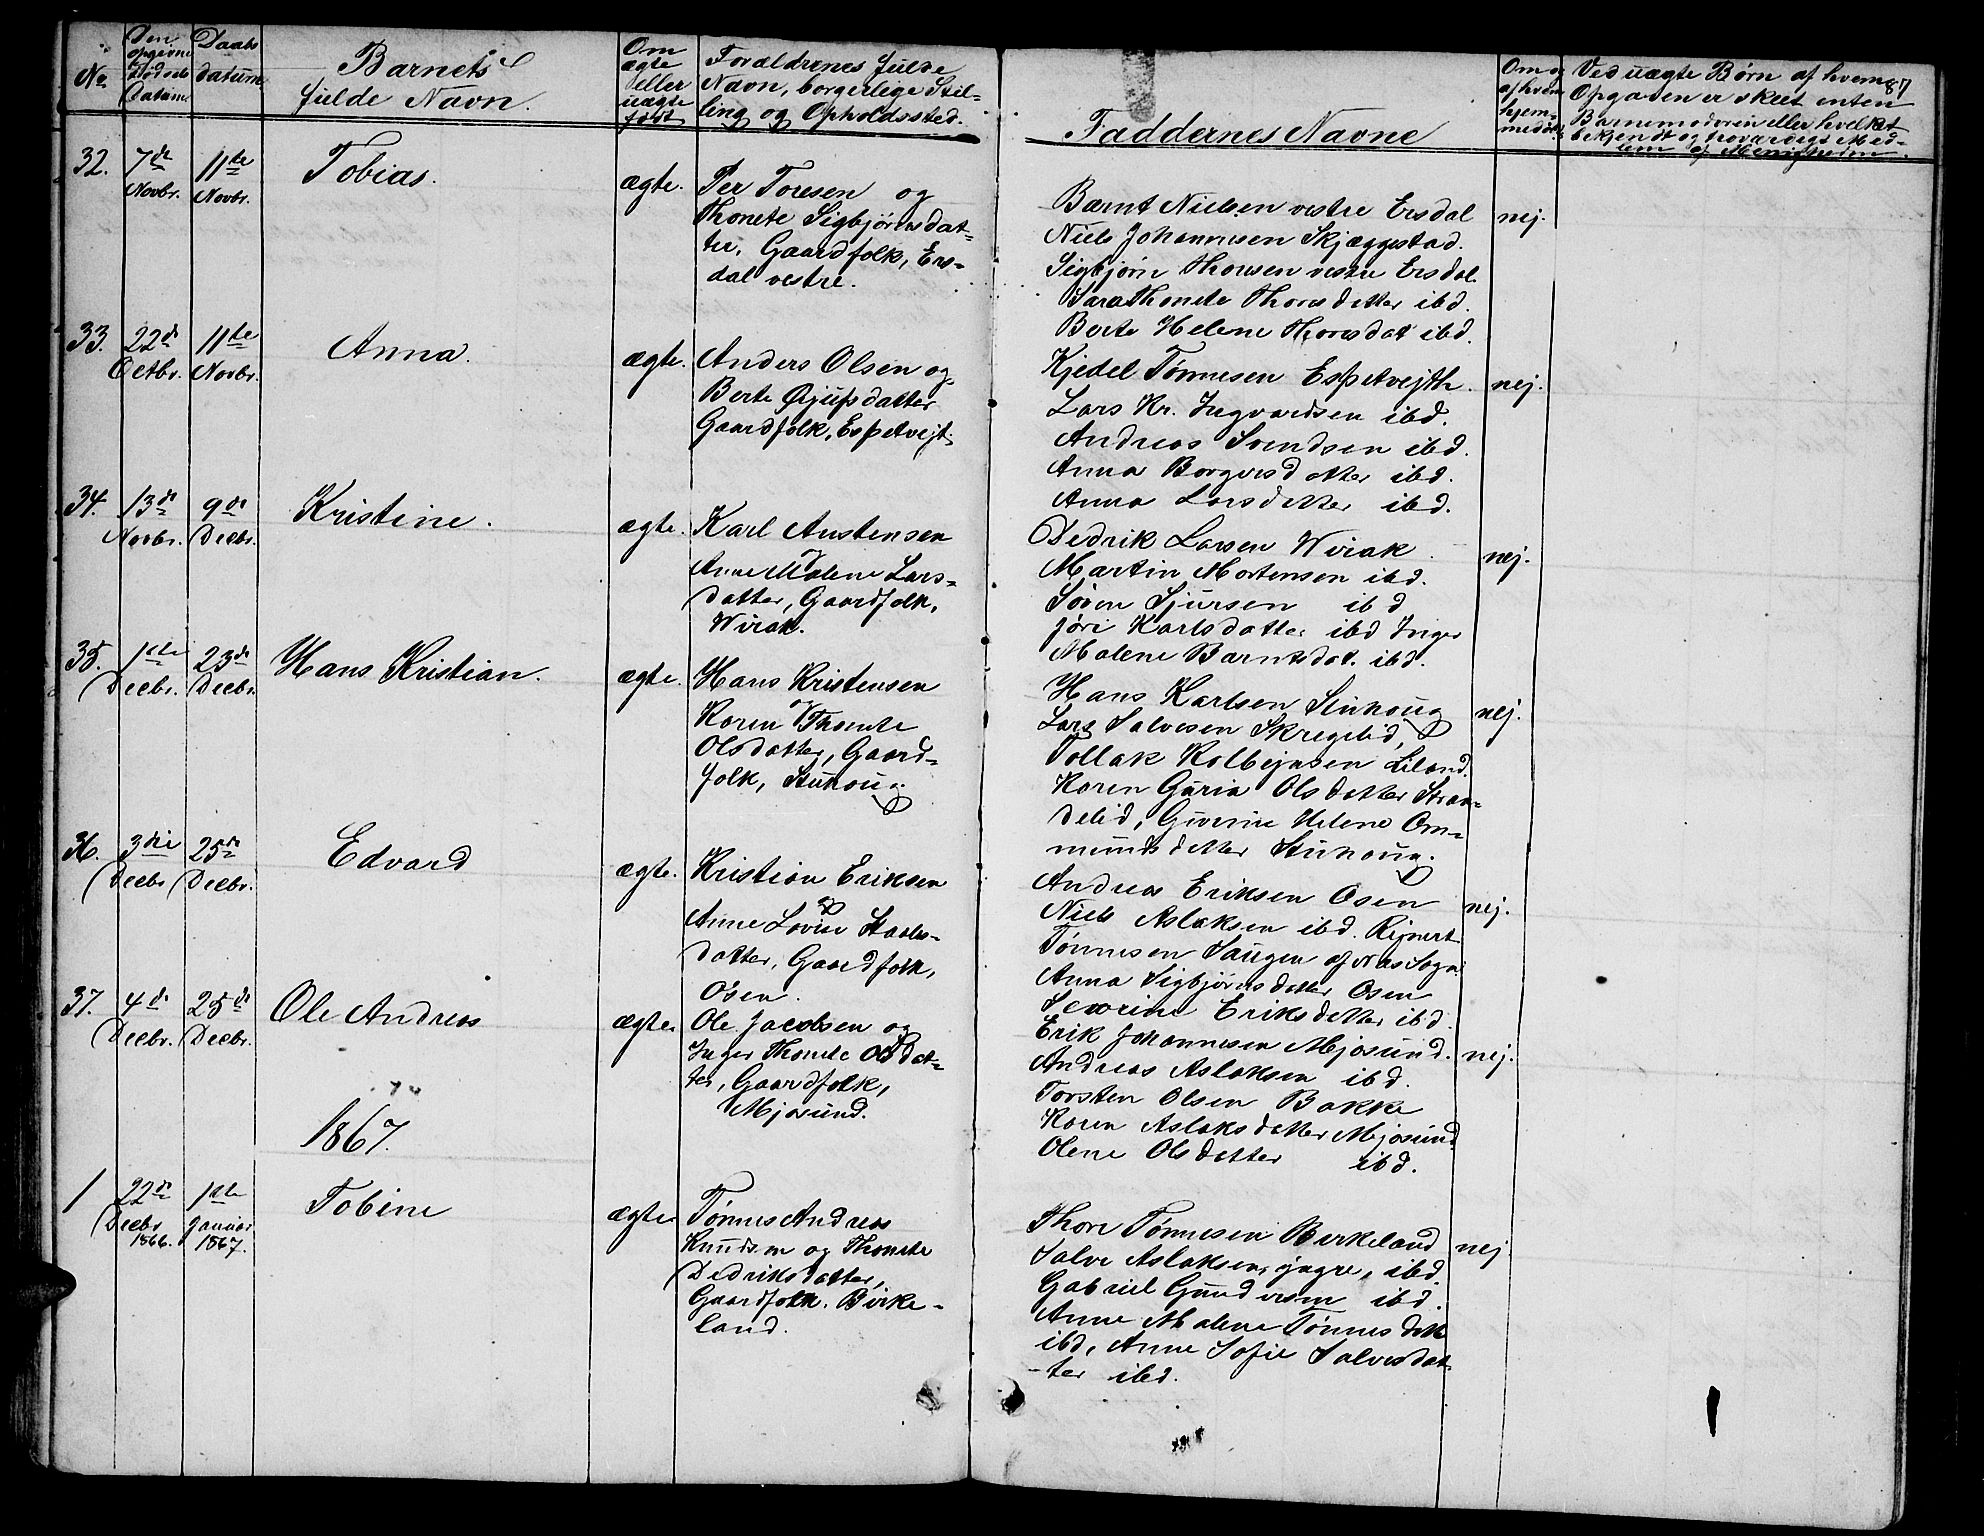 87
No
Den opgivne Fødsels Datum
Daabs datum
Barnets fulde Navn.
Om ægte eller uægte født
Forældrenes fulde Navn, borgerlige Stilling og Opholdssted.
Faddernes Navne
Om og af hvem hjemmedøbt
Ved uægte Børn af hvem
Opgaven er skeet enten
Barnemoderen eller hvilket
bekjendt og troværdigt Med-
lem af Menigheden.
32. 7de Novbr. 11te Novbr.
Tobias.
ægte.
Per Toresen og
Thonete Sigbjørnsdat-
ter, Gaardfolk, Ers-
dal vestre.
Bærnt Nielsen vestre Ersdal
Niels Johannesen Skjæggestad.
Sigbjørn Thorsen vestre Ersdal.
Sara Thonete Thorsdatter ibd.
Berte Helene Thorsdat ibd.
nej.
33. 22de Octbr. 11te Novbr.
Anna.
ægte.
Anders Olsen og
Berte Øjufsdatter
Gaardfolk, Espetvejt
Kjedel Tønnesen Espetvejth.
Lars Kr. Ingvardsen ibd.
Andreas Svendsen ibd.
Anna Borgersdatter ibd.
Anna Larsdatter ibd.
nej.
34. 13de Novbr. 9de Decbr.
Kristine.
ægte.
Karl Austensen
og
Anne Malene Lars-
datter, Gaardfolk,
Wirak.
Dedrik Larsen Wirak.
Martin Mortensen ibd.
Søren Sjursen ibd
Jøri Karlsdatter ibd Inger
Malene Barntsdat. ibd.
nej.
35. 1ste Decbr. 23de Decbr.
Hans Kristian.
ægte.
Hans Kristensen
og
Karen Thonete
Olsdatter, Gaard-
folk, Stuhoug.
Hans Karlsen Stuhoug
Lars Salvesen Skregelid,
Tollak Kolbejnsen Liland.
Karen Guria Olsdatter Stran-
delid, Guverine Helene Om-
mundsdatter Stuhoug.
nej.
36. 3die Decbr. 25de Decbr.
Edvard
ægte.
Kristian Eriksen
og
Anne Lovise
datter, Gaardfolk,
Osen.
Andreas Eriksen Osen
Niels Aslaksen ibd. Rejnert
Tønnesen Haugen af Næs Sogn
Anna Sigbjørnsdatter Osen
Severine Eriksdatter ibd.
nej.
37. 4de Decbr. 25de Decbr.
Ole Andreas
ægte.
Ole Jacobsen og
Inger Thonete Olsdat-
ter, Gaardfolk,
Mjosund.
Erik Johannesen Mjosund.
Andreas Aslaksen ibd.
Torsten Olsen Bakke
Karen Aslaksdatter Mjosund
Olene Olsdatter ibd.
nej.
1867.
1 22de Decbr. 1866. 1ste Januar 1867.
Tobine
ægte
Tønnes Andreas
Knudsen og Thonete
Dedriksdatter,
Gaardfolk. Birke-
land.
Thore Tønnesen Birkeland
Salve Aslaksen, yngre, ibd.
Gabriel Gundersen ibd.
Anne Malene Tønnesdatt
ibd, Anne Sofie Salvesdat-
ter ibd.
nej